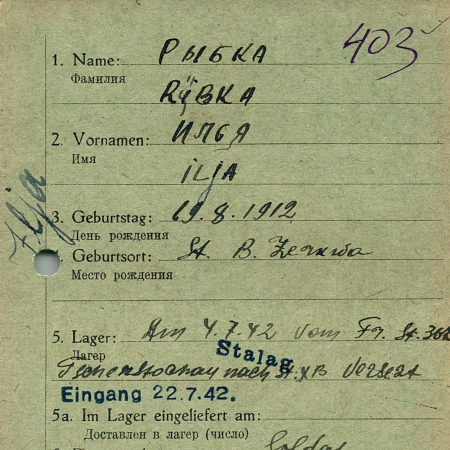 403
1. Name: РЫБКА
Фамилия
RÿBKA
2. Vornamen: ИЛЬЯ
Имя
ILJA
Ilja
3. Geburtstag: 19.8.1912
День рождения
4. Geburtsort: St. B.
Место рождения
5. Lager: Am 4.7.42 vom Fr. St.
Лагер
Stalag
Tschenstochau nach St. XB Versetzt
Eingang 22.7.42.
5a. Im Lager eingeliefert am:
Доставлен в лагер (число)
Soldat